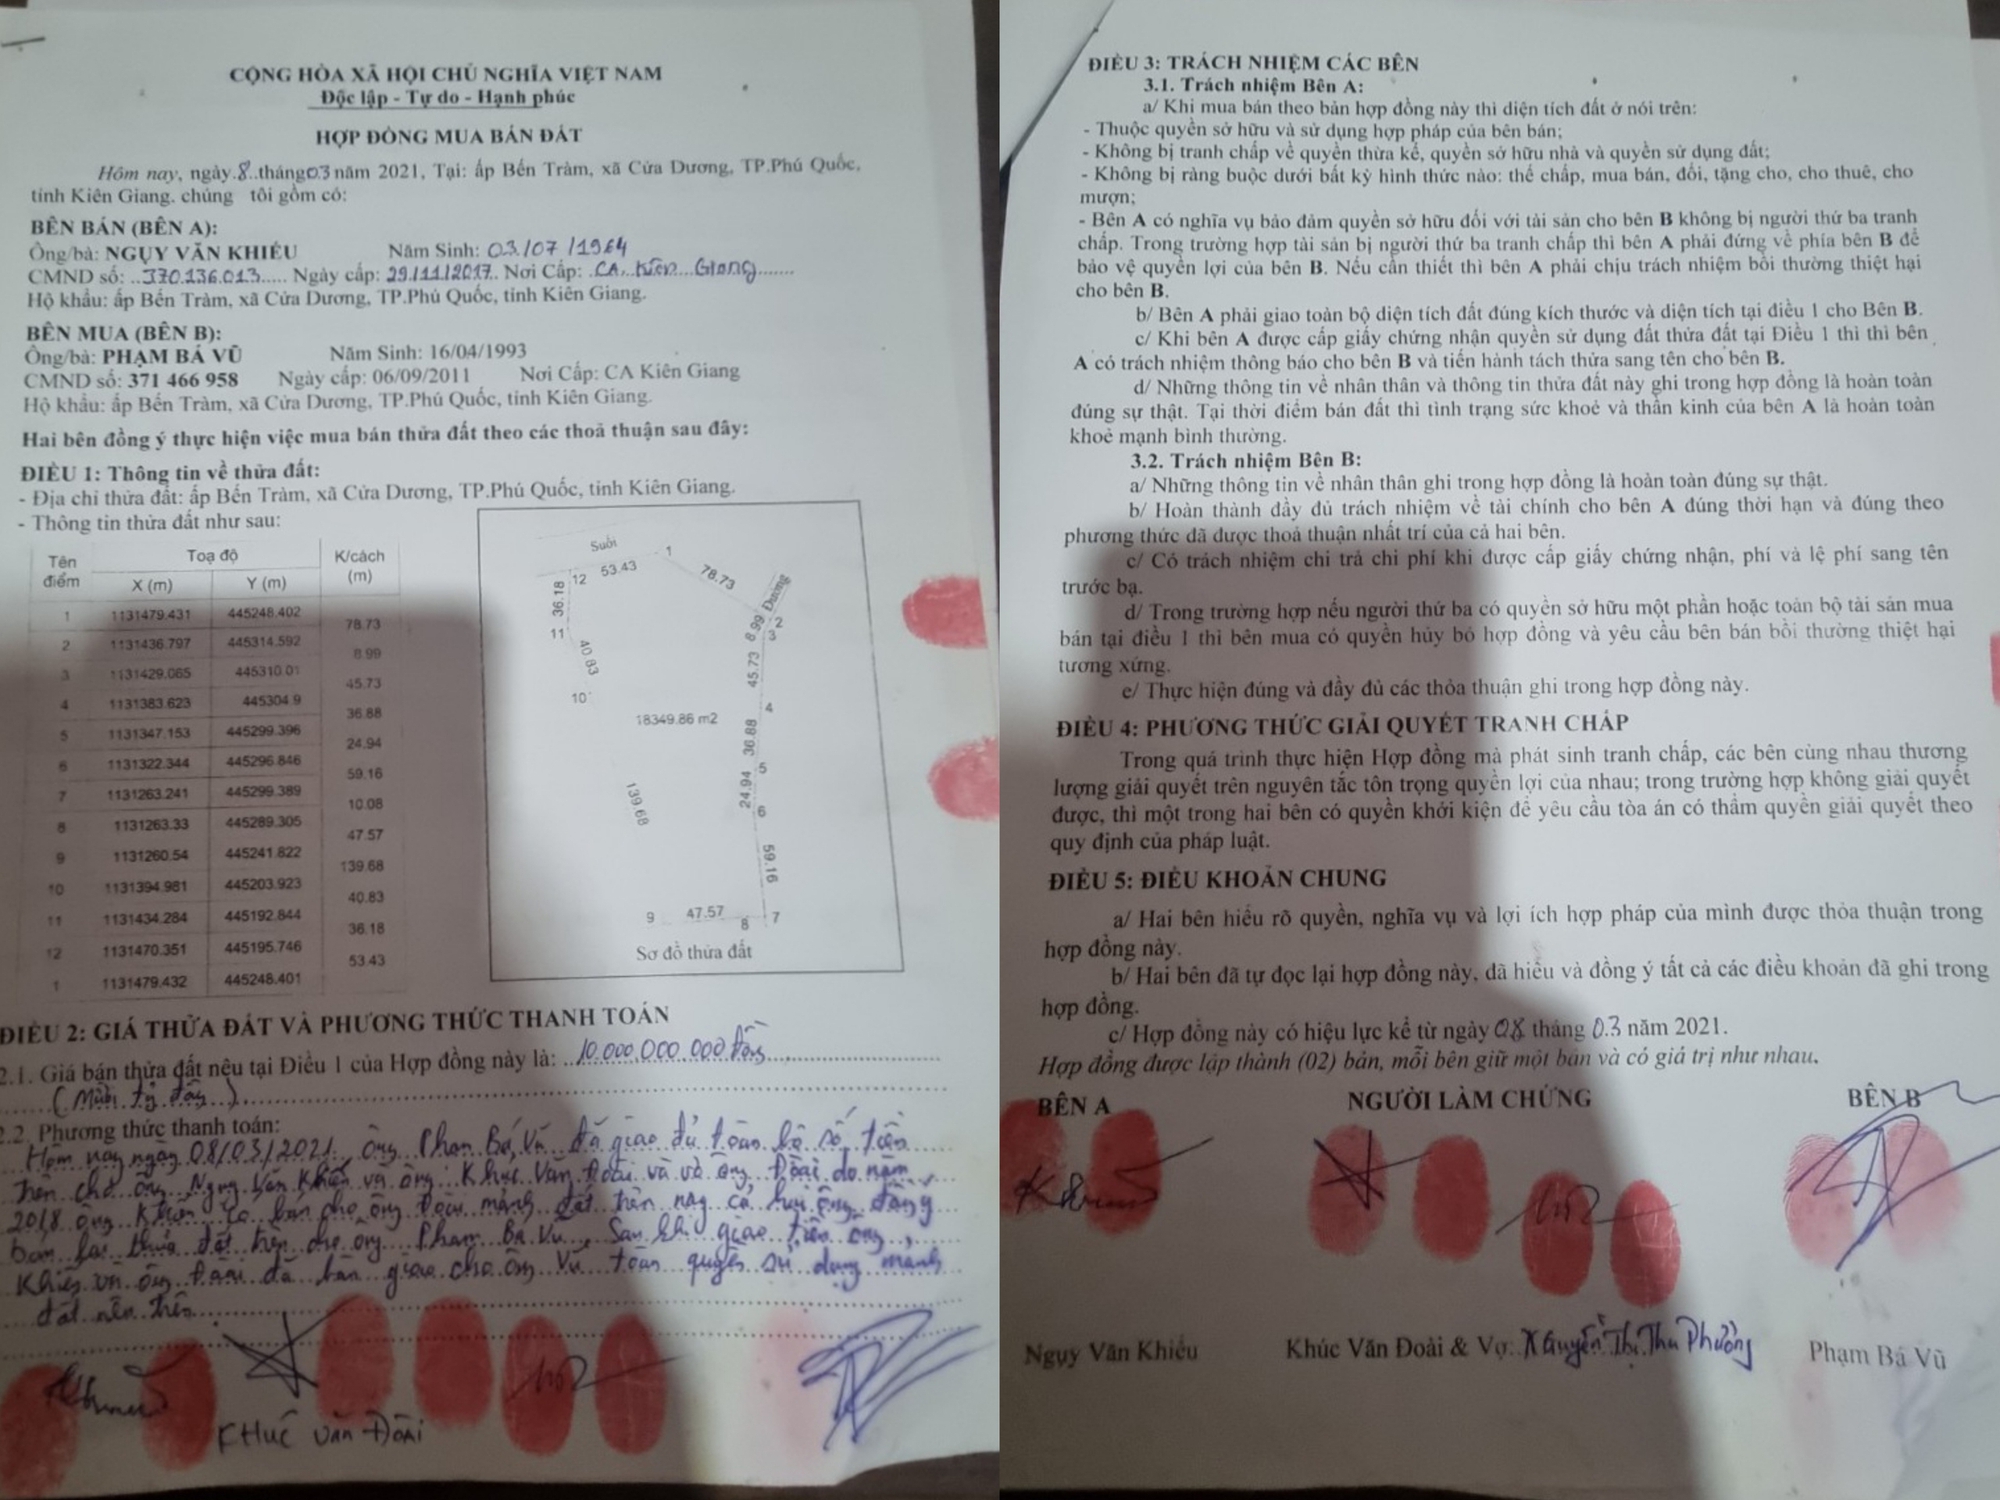 CỘNG HÒA XÃ HỘI CHỦ NGHĨA VIỆT NAM
Độc lập - Tự do - Hạnh phúc
HỢP ĐỒNG MUA BÁN ĐẤT
Hôm nay, ngày 8 tháng 03 năm 2021, Tại: ấp Bến Tràm, xã Cửa Dương, TP.Phú Quốc,
tỉnh Kiên Giang. chúng tôi gồm có:
BÊN BÁN (BÊN A):
Ông/bà: NGỤY VĂN KHIẾU Năm Sinh: 03/07/1964
CMND số: 370.136.013 Ngày cấp: 29/11/2017 Nơi Cấp: CA. Kiên Giang
Hộ khẩu: ấp Bến Tràm, xã Cửa Dương, TP.Phú Quốc, tỉnh Kiên Giang.
BÊN MUA (BÊN B):
Ông/bà: PHẠM BÁ VŨ Năm Sinh: 16/04/1993
CMND số: 371 466 958 Ngày cấp: 06/09/2011 Nơi Cấp: CA Kiên Giang
Hộ khẩu: ấp Bến Tràm, xã Cửa Dương, TP.Phú Quốc, tỉnh Kiên Giang.
Hai bên đồng ý thực hiện việc mua bán thửa đất theo các thoả thuận sau đây:
ĐIỀU 1: Thông tin về thửa đất:
- Địa chỉ thửa đất: ấp Bến Tràm, xã Cửa Dương, TP.Phú Quốc, tỉnh Kiên Giang.
- Thông tin thửa đất như sau:
Tên điểm Toạ độ K/cách (m)
X (m) Y (m)
1 1131479.431 445248.402
78.73
2 1131436.797 445314.592
8.99
3 1131429.065 445310.01
45.73
4 1131383.623 445304.9
36.88
5 1131347.153 445299.396
24.94
6 1131322.344 445296.846
59.16
7 1131263.241 445299.389
10.08
8 1131263.33 445289.305
47.57
9 1131260.54 445241.822
139.68
10 1131394.981 445203.923
40.83
11 1131434.284 445192.844
36.18
12 1131470.351 445195.746
53.43
1 1131479.432 445248.401
Suối
1
12 53.43
78.73
Đường
36.18
8.99 2
3
11
40.83
45.73
10
4
18349.86 m2
36.88
5
24.94
6
139.68
59.16
9 47.57 8 7
Sơ đồ thửa đất
ĐIỀU 2: GIÁ THỬA ĐẤT VÀ PHƯƠNG THỨC THANH TOÁN
2.1. Giá bán thửa đất nêu tại Điều 1 của Hợp đồng này là: 10.000.000.000 đồng
(Mười tỷ đồng)
2.2. Phương thức thanh toán:
Hôm nay ngày 08/03/2021 ông Phạm Bá Vũ đã giao đủ toàn bộ số tiền
trên cho ông Ngụy Văn Khiếu và ông Khúc Văn Đoài và vợ ông Đoài do năm
2018 ông Khiếu có bán cho ông Đoài mảnh đất trên nay cả hai ông đồng
bán lại thửa đất trên cho ông Phạm Bá Vũ. Sau khi giao tiền ông
Khiếu và ông Đoài đã bàn giao cho ông Vũ toàn quyền sử dụng mảnh
đất nêu trên
Khúc Văn Đoài
ĐIỀU 3: TRÁCH NHIỆM CÁC BÊN
3.1. Trách nhiệm Bên A:
a/ Khi mua bán theo bản hợp đồng này thì diện tích đất ở nói trên:
- Thuộc quyền sở hữu và sử dụng hợp pháp của bên bán;
- Không bị tranh chấp về quyền thừa kế, quyền sở hữu nhà và quyền sử dụng đất;
- Không bị ràng buộc dưới bất kỳ hình thức nào: thế chấp, mua bán, đổi, tặng cho, cho thuê, cho
mượn;
- Bên A có nghĩa vụ bảo đảm quyền sở hữu đối với tài sản cho bên B không bị người thứ ba tranh
chấp. Trong trường hợp tài sản bị người thứ ba tranh chấp thì bên A phải đứng về phía bên B để
bảo vệ quyền lợi của bên B. Nếu cần thiết thì bên A phải chịu trách nhiệm bồi thường thiệt hại
cho bên B.
b/ Bên A phải giao toàn bộ diện tích đất đúng kích thước và diện tích tại điều 1 cho Bên B.
c/ Khi bên A được cấp giấy chứng nhận quyền sử dụng đất thửa đất tại Điều 1 thì thì bên
A có trách nhiệm thông báo cho bên B và tiến hành tách thửa sang tên cho bên B.
d/ Những thông tin về nhân thân và thông tin thửa đất này ghi trong hợp đồng là hoàn toàn
đúng sự thật. Tại thời điểm bán đất thì tình trạng sức khoẻ và thần kinh của bên A là hoàn toàn
khoẻ mạnh bình thường.
3.2. Trách nhiệm Bên B:
a/ Những thông tin về nhân thân ghi trong hợp đồng là hoàn toàn đúng sự thật.
b/ Hoàn thành đầy đủ trách nhiệm về tài chính cho bên A đúng thời hạn và đúng theo
phương thức đã được thoả thuận nhất trí của cả hai bên.
c/ Có trách nhiệm chi trả chi phí khi được cấp giấy chứng nhận, phí và lệ phí sang tên
trước bạ.
d/ Trong trường hợp nếu người thứ ba có quyền sở hữu một phần hoặc toàn bộ tài sản mua
bán tại điều 1 thì bên mua có quyền hủy bỏ hợp đồng và yêu cầu bên bán bồi thường thiệt hại
tương xứng.
e/ Thực hiện đúng và đầy đủ các thỏa thuận ghi trong hợp đồng này.
ĐIỀU 4: PHƯƠNG THỨC GIẢI QUYẾT TRANH CHẤP
Trong quá trình thực hiện Hợp đồng mà phát sinh tranh chấp, các bên cùng nhau thương
lượng giải quyết trên nguyên tắc tôn trọng quyền lợi của nhau; trong trường hợp không giải quyết
được, thì một trong hai bên có quyền khởi kiện để yêu cầu tòa án có thẩm quyền giải quyết theo
quy định của pháp luật.
ĐIỀU 5: ĐIỀU KHOẢN CHUNG
a/ Hai bên hiểu rõ quyền, nghĩa vụ và lợi ích hợp pháp của mình được thỏa thuận trong
hợp đồng này.
b/ Hai bên đã tự đọc lại hợp đồng này, đã hiểu và đồng ý tất cả các điều khoản đã ghi trong
hợp đồng.
c/ Hợp đồng này có hiệu lực kể từ ngày 08 tháng 03 năm 2021.
Hợp đồng được lập thành (02) bản, mỗi bên giữ một bản và có giá trị như nhau.
BÊN A NGƯỜI LÀM CHỨNG BÊN B
Ngụy Văn Khiếu Khúc Văn Đoài & Vợ: Nguyễn Thị Thu Phường Phạm Bá Vũ